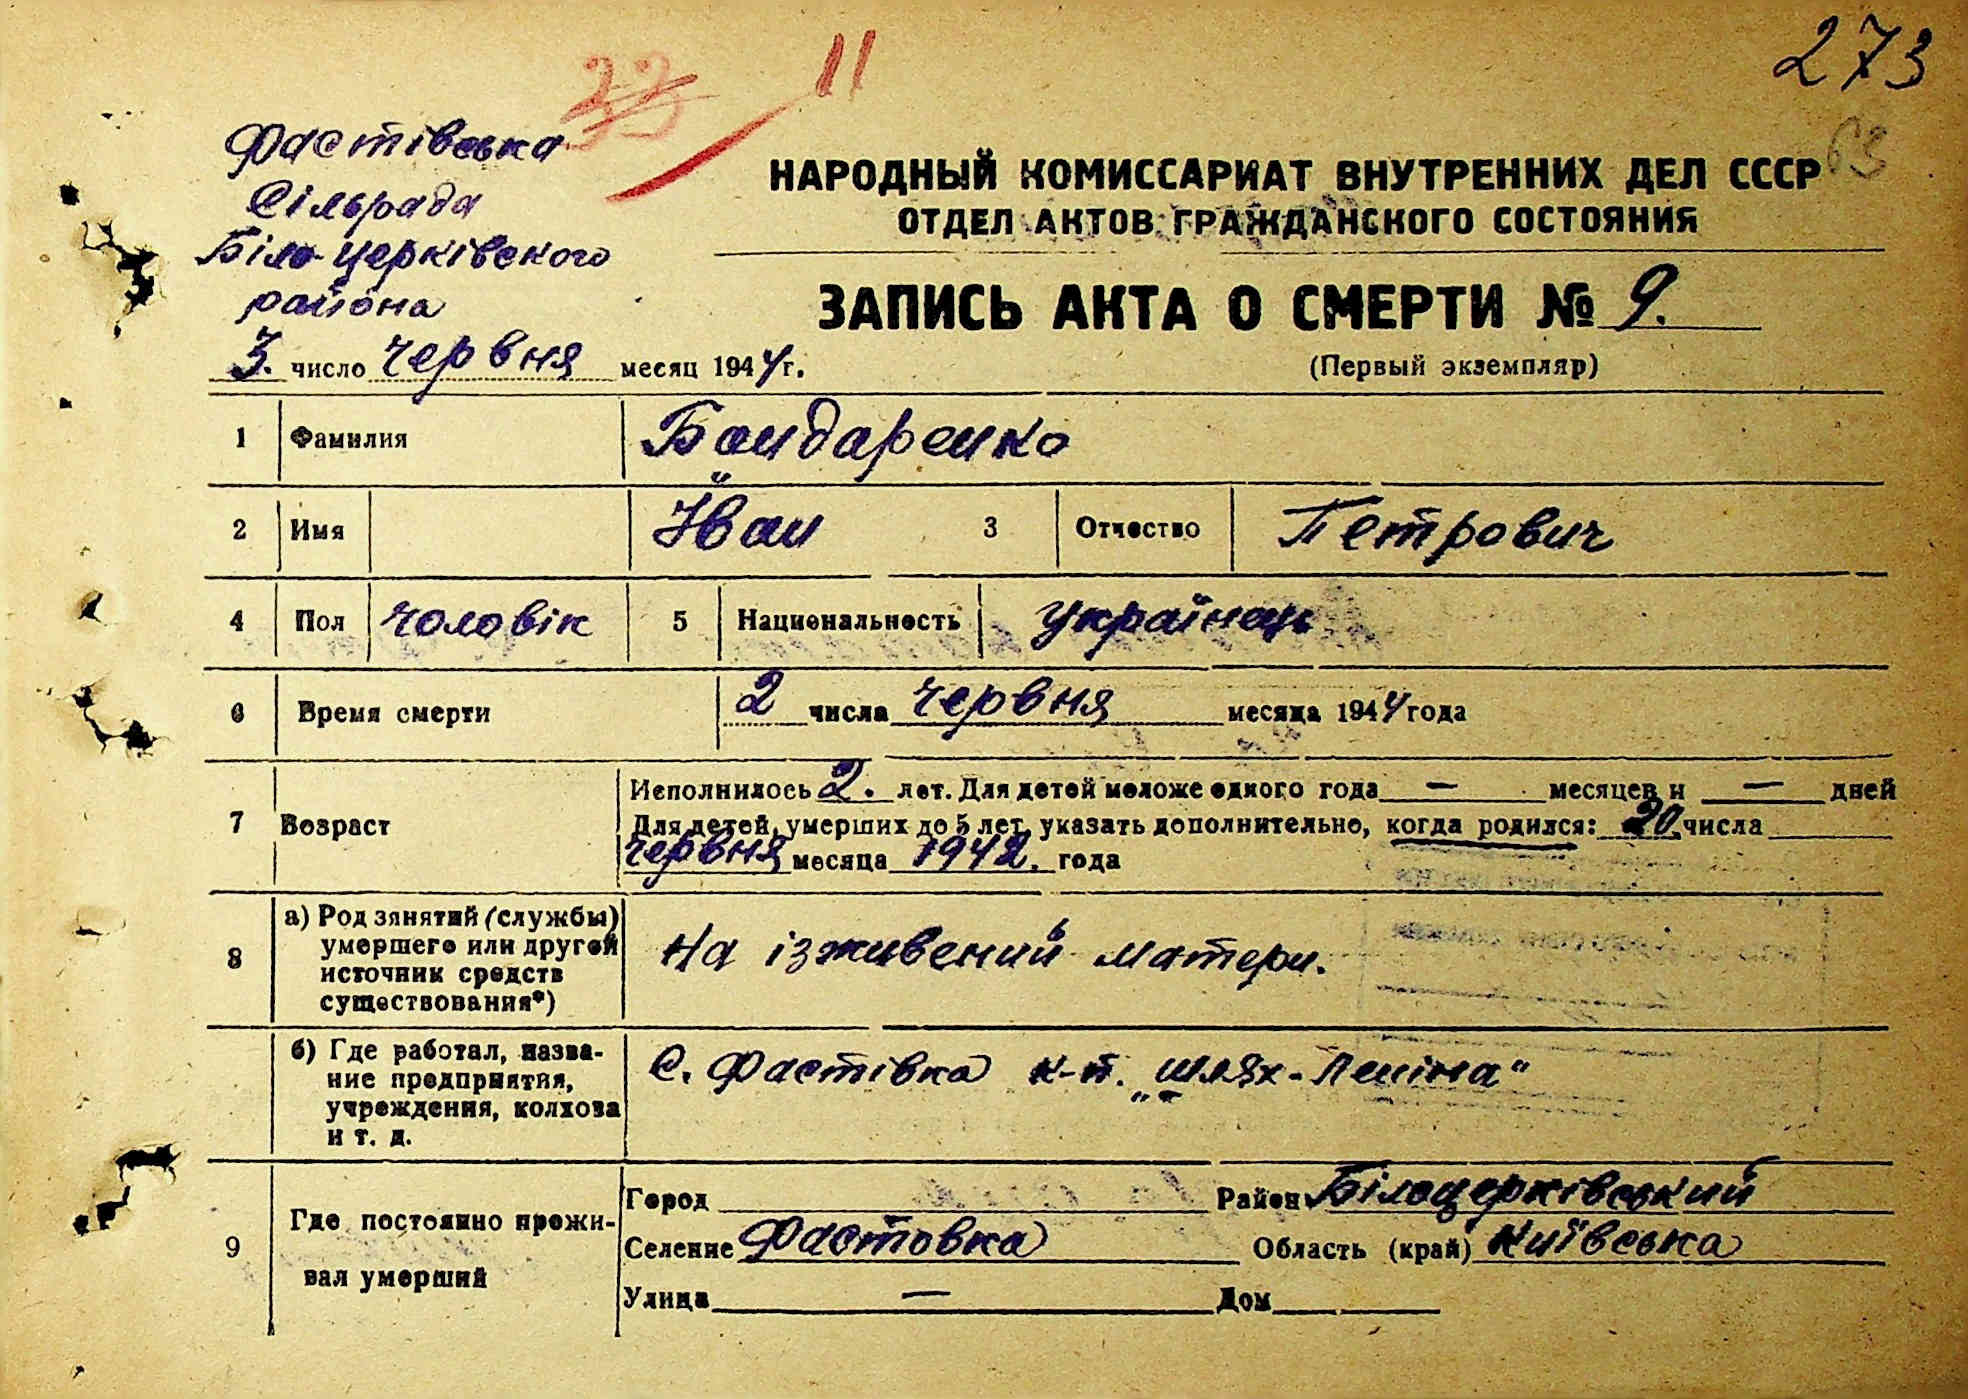 273
11
63
Фастівська
Сільрада
Біло-Церківского
района
НАРОДНЫЙ КОМИССАРИАТ ВНУТРЕННИХ ДЕЛ СССР
ОТДЕЛ АКТОВ ГРАЖДАНСКОГО СОСТОЯНИЯ
ЗАПИСЬ АКТА О СМЕРТИ № 9.
3. число червня месяц 1944 г.
(Первый экземпляр)
1 Фамилия Бондаренко
2 Имя Іван 3 Отчество Петрович
4 Пол чоловік 5 Национальность українець
6 Время смерти 2 числа червня месяца 1944 года
7 Возраст
Исполнилось 2. лет. Для детей моложе одного года — месяцев и — дней
Для детей, умерших до 5 лет, указать дополнительно, когда родился: 20 числа
червня месяца 1942. года
8 а) Род занятий (службы) умершего или другой источник средств существования*)
На іживений матери.
б) Где работал, название предприятия, учреждения, колхоза и т. д.
С. Фастівка к-п. „Шлях-Леніна"
9 Где постоянно проживал умерший
Город Район Білоцерківський
Селение Фастовка Область (край) Київська
Улица — Дом